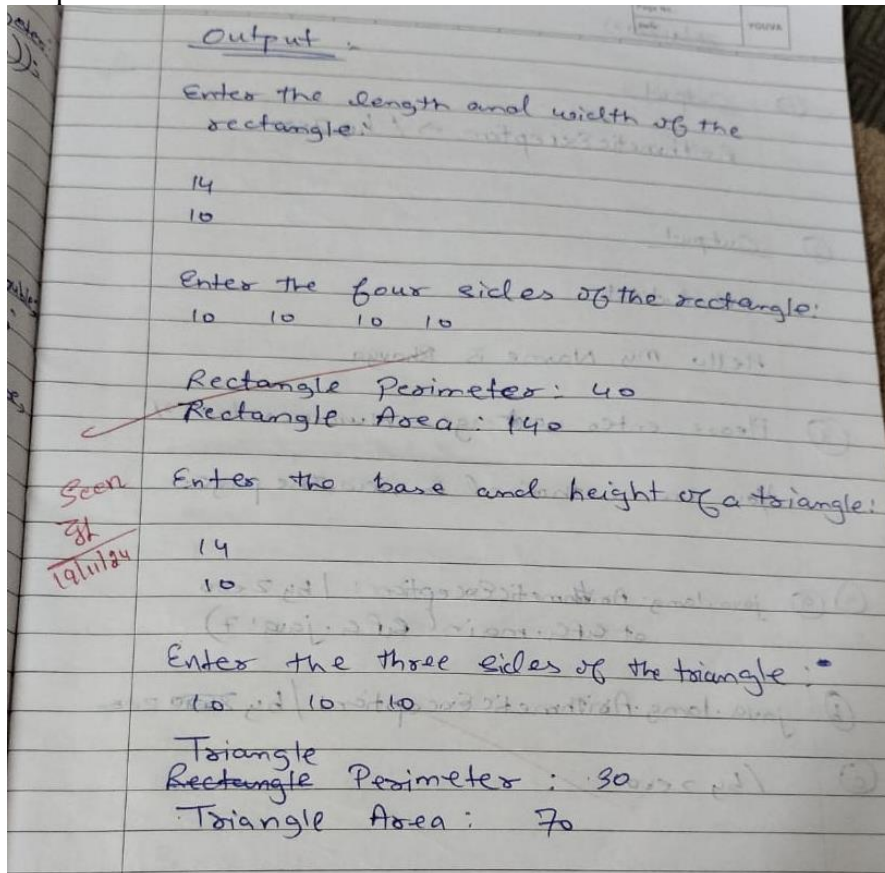 Output :
YOUVA
Enter the length and width of the
rectangle:
14
10
Enter the four sides of the rectangle:
10 10 10 10
Rectangle Perimeter: 40
Rectangle Area: 140
Seen
19/11/24
Enter the base and height of a triangle:
14
10
Enter the three sides of the triangle:
10 10 10
Triangle
Rectangle Perimeter : 30
Triangle Area : 70